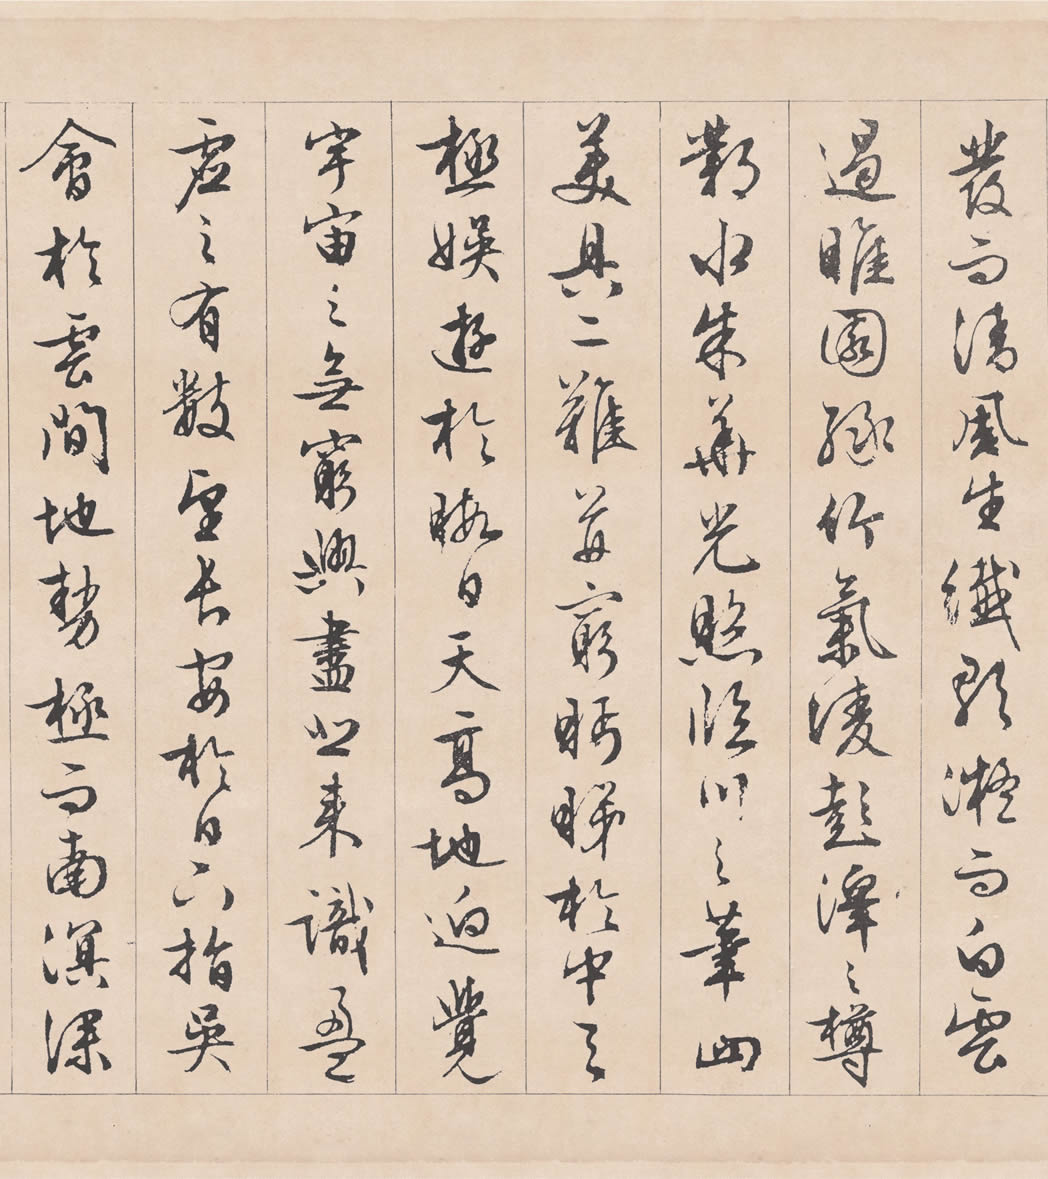 發而清風生纖歌凝而白雲
遏睢園綠竹氣凌彭澤之樽
鄴水朱華光照臨川之筆四
美具二難并窮眄睇於中天
極娛遊於暇日天高地迥覺
宇宙之無窮興盡悲來識盈
虛之有數望長安於日下指吳
會於雲間地勢極而南溟深